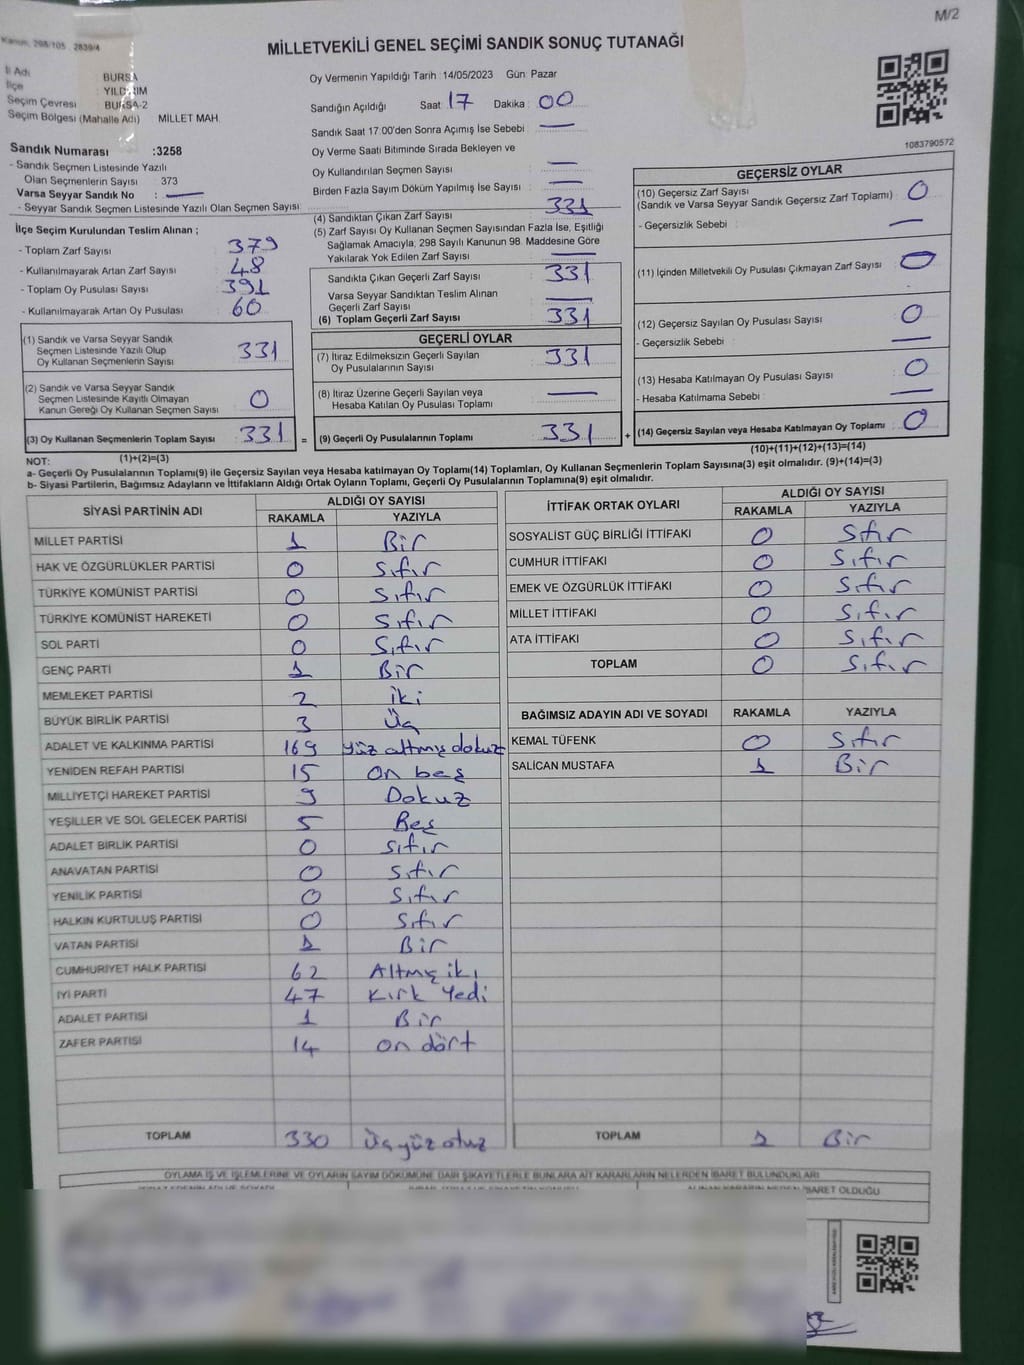 M/2
Kanun, 298/105 , 2839/4
MİLLETVEKİLİ GENEL SEÇİMİ SANDIK SONUÇ TUTANAĞI
İl Adı BURSA
İlçe YILDIRIM
Seçim Çevresi BURSA-2
Seçim Bölgesi (Mahalle Adı) MİLLET MAH.
Oy Vermenin Yapıldığı Tarih : 14/05/2023 Gün: Pazar
Sandığın Açıldığı Saat 17 Dakika : 00
Sandık Saat 17:00'den Sonra Açımış İse Sebebi : —
Oy Verme Saati Bitiminde Sırada Bekleyen ve
Oy Kullandırılan Seçmen Sayısı —
Birden Fazla Sayım Döküm Yapılmış İse Sayısı —
1083790572
Sandık Numarası :3258
- Sandık Seçmen Listesinde Yazılı
Olan Seçmenlerin Sayısı : 373
Varsa Seyyar Sandık No : —
- Seyyar Sandık Seçmen Listesinde Yazılı Olan Seçmen Sayısı :
İlçe Seçim Kurulundan Teslim Alınan ;
- Toplam Zarf Sayısı 379
- Kullanılmayarak Artan Zarf Sayısı 48
- Toplam Oy Pusulası Sayısı 391
- Kullanılmayarak Artan Oy Pusulası 60
(1) Sandık ve Varsa Seyyar Sandık
Seçmen Listesinde Yazılı Olup
Oy Kullanan Seçmenlerin Sayısı 331
(2) Sandık ve Varsa Seyyar Sandık
Seçmen Listesinde Kayıtlı Olmayan
Kanun Gereği Oy Kullanan Seçmen Sayısı 0
(3) Oy Kullanan Seçmenlerin Toplam Sayısı 331 =
(1)+(2)=(3)
(4) Sandıktan Çıkan Zarf Sayısı 331
(5) Zarf Sayısı Oy Kullanan Seçmen Sayısından Fazla İse, Eşitliği
Sağlamak Amacıyla, 298 Sayılı Kanunun 98. Maddesine Göre
Yakılarak Yok Edilen Zarf Sayısı —
Sandıkta Çıkan Geçerli Zarf Sayısı 331
Varsa Seyyar Sandıktan Teslim Alınan
Geçerli Zarf Sayısı —
(6) Toplam Geçerli Zarf Sayısı 331
GEÇERLİ OYLAR
(7) İtiraz Edilmeksizin Geçerli Sayılan
Oy Pusulalarının Sayısı 331
(8) İtiraz Üzerine Geçerli Sayılan veya
Hesaba Katılan Oy Pusulası Toplamı —
(9) Geçerli Oy Pusulalarının Toplamı 331 +
GEÇERSİZ OYLAR
(10) Geçersiz Zarf Sayısı
(Sandık ve Varsa Seyyar Sandık Geçersiz Zarf Toplamı) : 0
- Geçersizlik Sebebi : —
(11) İçinden Milletvekili Oy Pusulası Çıkmayan Zarf Sayısı 0
(12) Geçersiz Sayılan Oy Pusulası Sayısı 0
- Geçersizlik Sebebi : —
(13) Hesaba Katılmayan Oy Pusulası Sayısı 0
- Hesaba Katılmama Sebebi : —
(14) Geçersiz Sayılan veya Hesaba Katılmayan Oy Toplamı 0
(10)+(11)+(12)+(13)=(14)
NOT:
a- Geçerli Oy Pusulalarının Toplamı(9) ile Geçersiz Sayılan veya Hesaba katılmayan Oy Toplamı(14) Toplamları, Oy Kullanan Seçmenlerin Toplam Sayısına(3) eşit olmalıdır. (9)+(14)=(3)
b- Siyasi Partilerin, Bağımsız Adayların ve İttifakların Aldığı Ortak Oyların Toplamı, Geçerli Oy Pusulalarının Toplamına(9) eşit olmalıdır.
SİYASİ PARTİNİN ADI ALDIĞI OY SAYISI
RAKAMLA YAZIYLA
MİLLET PARTİSİ 1 Bir
HAK VE ÖZGÜRLÜKLER PARTİSİ 0 Sıfır
TÜRKİYE KOMÜNİST PARTİSİ 0 Sıfır
TÜRKİYE KOMÜNİST HAREKETİ 0 Sıfır
SOL PARTİ 0 Sıfır
GENÇ PARTİ 1 Bir
MEMLEKET PARTİSİ 2 iki
BÜYÜK BİRLİK PARTİSİ 3 Üç
ADALET VE KALKINMA PARTİSİ 169 yüz altmış dokuz
YENİDEN REFAH PARTİSİ 15 On beş
MİLLİYETÇİ HAREKET PARTİSİ 9 Dokuz
YEŞİLLER VE SOL GELECEK PARTİSİ 5 Beş
ADALET BİRLİK PARTİSİ 0 Sıfır
ANAVATAN PARTİSİ 0 Sıfır
YENİLİK PARTİSİ 0 Sıfır
HALKIN KURTULUŞ PARTİSİ 0 Sıfır
VATAN PARTİSİ 1 Bir
CUMHURİYET HALK PARTİSİ 62 Altmış iki
İYİ PARTİ 47 Kırk Yedi
ADALET PARTİSİ 1 Bir
ZAFER PARTİSİ 14 on dört
TOPLAM 330 Üç yüz otuz
İTTİFAK ORTAK OYLARI ALDIĞI OY SAYISI
RAKAMLA YAZIYLA
SOSYALİST GÜÇ BİRLİĞİ İTTİFAKI 0 Sıfır
CUMHUR İTTİFAKI 0 Sıfır
EMEK VE ÖZGÜRLÜK İTTİFAKI 0 Sıfır
MİLLET İTTİFAKI 0 Sıfır
ATA İTTİFAKI 0 Sıfır
TOPLAM 0 Sıfır
BAĞIMSIZ ADAYIN ADI VE SOYADI RAKAMLA YAZIYLA
KEMAL TÜFENK 0 Sıfır
SALİCAN MUSTAFA 1 Bir
TOPLAM 1 Bir
OYLAMA İŞ VE İŞLEMLERİNE VE OYLARIN SAYIM DÖKÜMÜNE DAİR ŞİKAYETLERLE BUNLARA AİT KARARLARIN NELERDEN İBARET BULUNDUKLARI
İBARET OLDUĞU